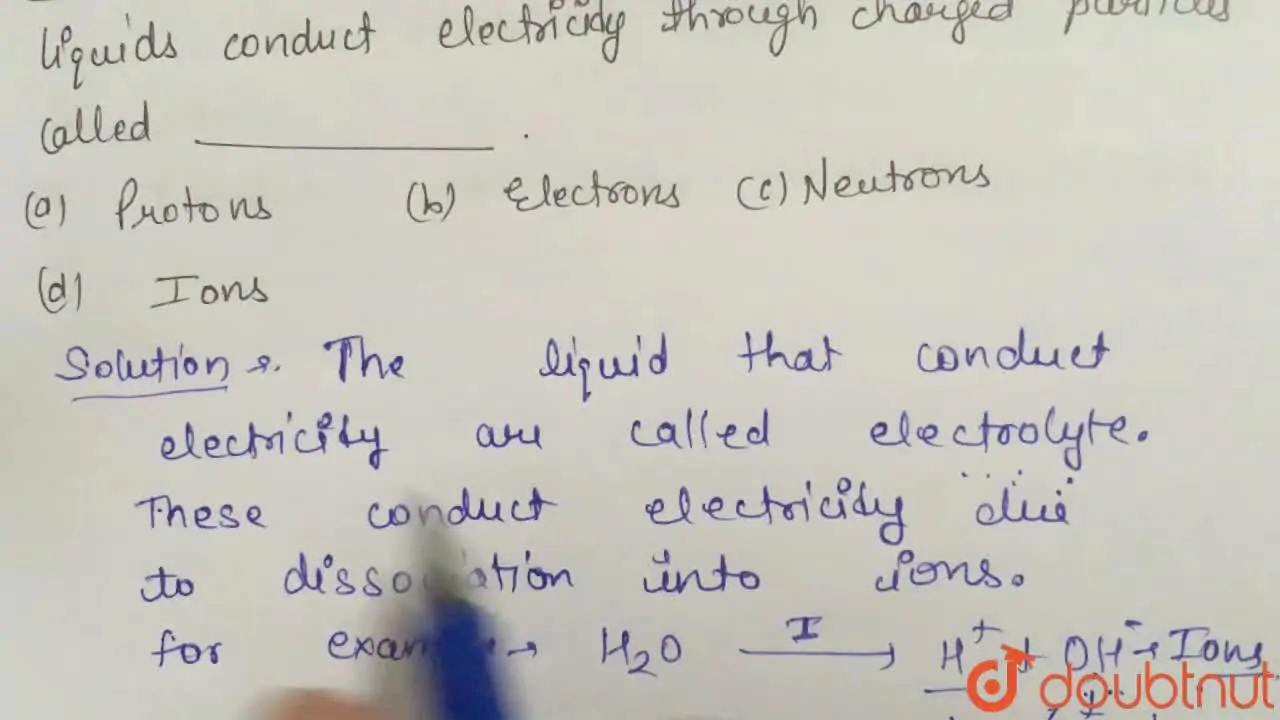 liquids conduct electricity through charged particles
called ____________ .
(a) Protons (b) Electrons (c) Neutrons
(d) Ions
Solution :. The liquid that conduct
electricity are called electrolyte.
These conduct electricity due
to dissociation into ions.
for → H₂O —I→ H⁺ + OH⁻ → Ions
doubtnut